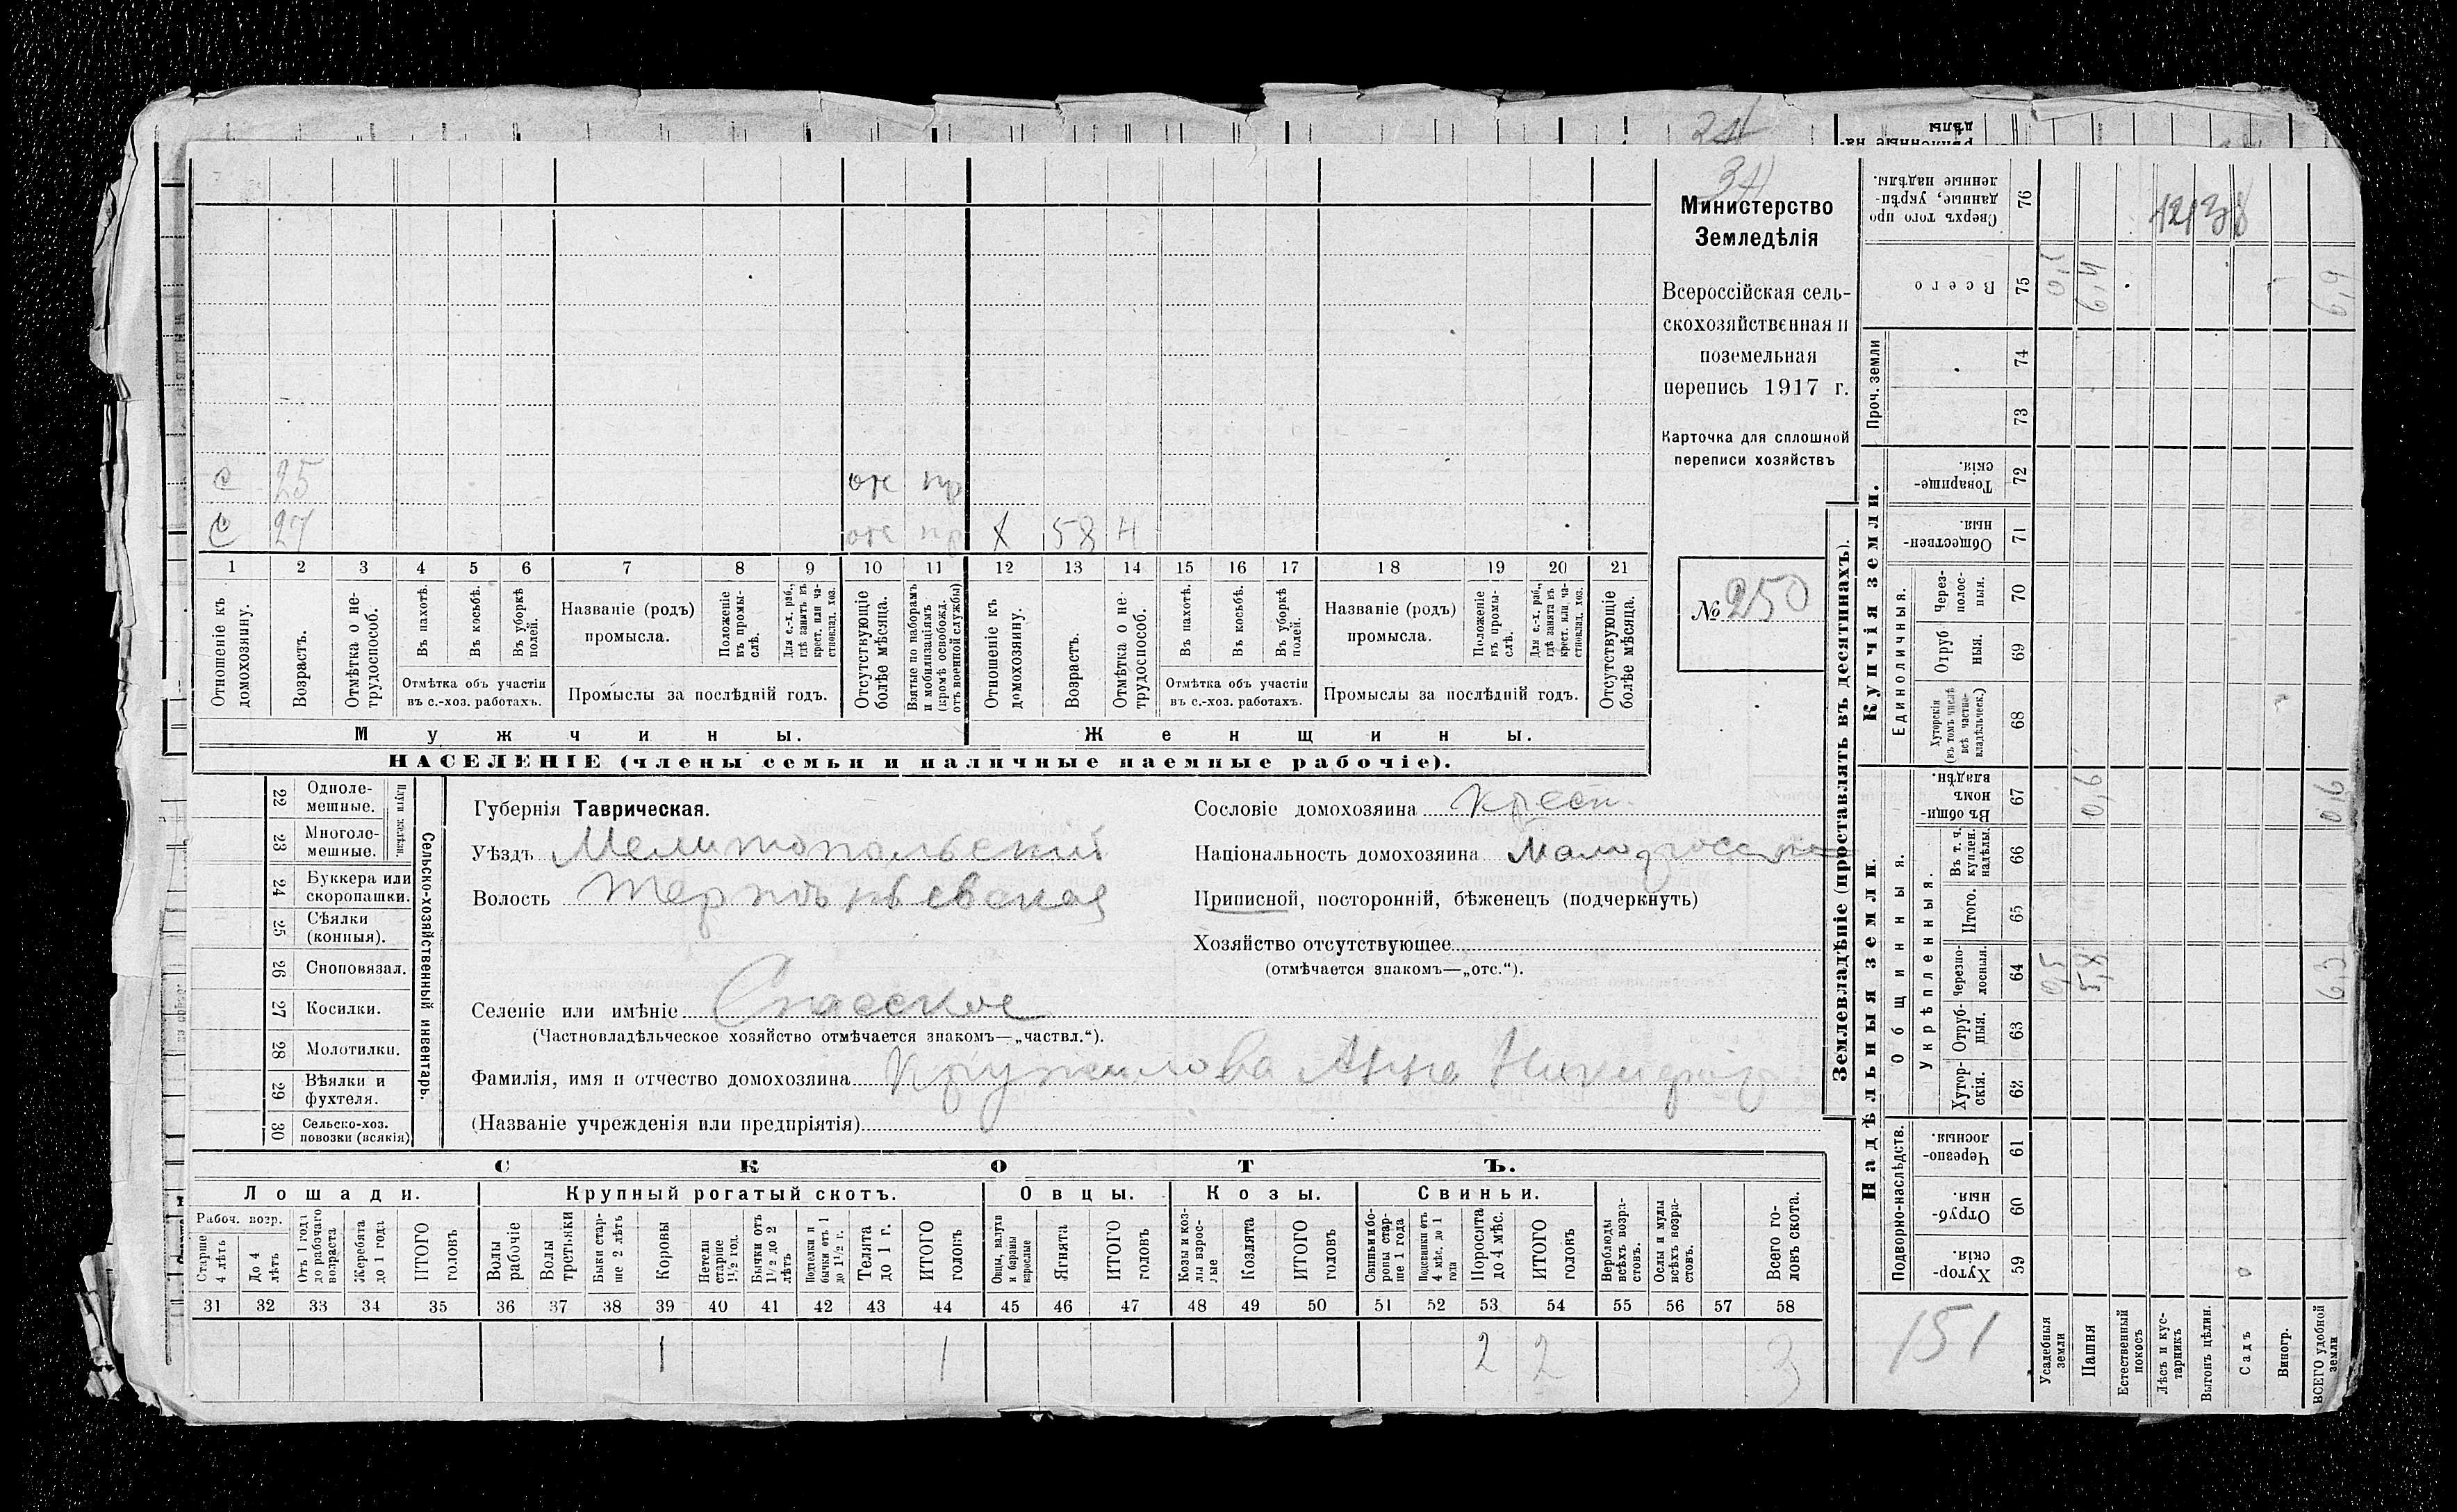 34
Министерство
Земледѣлія
Всероссійская сель-
скохозяйственная и
поземельная
перепись 1917 г.
Карточка для сплошной
переписи хозяйствъ
№ 250
с 25 отс пр
с 27 отс пр х 58 н
1 2 3 4 5 6 7 8 9 10 11 12 13 14 15 16 17 18 19 20 21
Отношеніе къ домохозяину.
Возрастъ.
Отмѣтка о не-трудоспособ.
Въ пахотѣ.
Въ косьбѣ.
Въ уборкѣ полей.
Отмѣтка объ участіи
въ с.-хоз. работахъ.
Названіе (родъ)
промысла.
Положеніе въ промы-слѣ.
Для с.-х. раб., гдѣ занятъ въ крест. или ча-стновлад. хоз.
Промыслы за послѣдній годъ.
Отсутствующіе болѣе мѣсяца.
Взятые по наборамъ и мобилизаціямъ (кромѣ освобожд. отъ военной службы)
Отношеніе къ домохозяину.
Возрастъ.
Отмѣтка о не-трудоспособ.
Въ пахотѣ.
Въ косьбѣ.
Въ уборкѣ полей.
Отмѣтка объ участіи
въ с.-хоз. работахъ.
Названіе (родъ)
промысла.
Положеніе въ промы-слѣ.
Для с.-х. раб., гдѣ занята въ крест. или ча-стновлад. хоз.
Промыслы за послѣдній годъ.
Отсутствующіе болѣе мѣсяца.
Мужчины.
Женщины.
НАСЕЛЕНІЕ (члены семьи и наличные наемные рабочіе).
22 Однолемешные.
23 Многолемешные.
Плуги желѣзн.
24 Буккера или скоропашки.
25 Сѣялки (конныя).
26 Сноповязал.
27 Косилки.
28 Молотилки.
29 Вѣялки и фухтеля.
30 Сельско-хоз. повозки (всякія)
Сельско-хозяйственный инвентарь.
Губернія Таврическая.
Уѣздъ Мелитопольскій
Волость Терпѣньевская
Селеніе или имѣніе Спасское
(Частновладѣльческое хозяйство отмѣчается знакомъ—„частвл.“).
Фамилія, имя и отчество домохозяина Кружилова Анна Никифор
(Названіе учрежденія или предпріятія)
Сословіе домохозяина крест.
Національность домохозяина Малоросс
Приписной, посторонній, бѣженецъ (подчеркнуть)
Хозяйство отсутствующее
(отмѣчается знакомъ—„отс.“).
СКОТЪ.
Лошади. Крупный рогатый скотъ. Овцы. Козы. Свиньи.
Рабоч. возр.
Старше 4 лѣтъ
До 4 лѣтъ
Отъ 1 года до рабочаго возраста
Жеребята до 1 года
ИТОГО головъ
Волы рабочіе
Волы третьяки
Быки стар-ше 2 лѣтъ
Коровы
Нетели старше 1½ год.
Бычки отъ 1½ до 2 лѣтъ
Подтелки и бычки отъ 1 до 1½ г.
Телята до 1 г.
ИТОГО головъ
Овцы, валухи и бараны взрослые
Ягнята
ИТОГО головъ
Козы и коз-лы взрос-лые
Козлята
ИТОГО головъ
Свиньи и бо-ровы стар-ше 1 года
Подсвинки отъ 4 мѣс. до 1 года
Поросята до 4 мѣс.
ИТОГО головъ
Верблюды всѣхъ возра-стовъ.
Ослы и мулы всѣхъ возра-стовъ.
Всего го-ловъ скота.
31 32 33 34 35 36 37 38 39 40 41 42 43 44 45 46 47 48 49 50 51 52 53 54 55 56 57 58
1 1 2 2 3
Землевладѣніе (проставлять въ десятинахъ).
Надѣльныя земли.
Купчія земли.
Проч. земли
Подворно-наслѣдств.
Общинныя.
Укрѣпленныя.
Единоличныя.
Хутор-скія. 59
Отруб-ныя. 60
Черезпо-лосныя. 61
Хутор-скія. 62
Отруб-ныя. 63
Черезпо-лосныя. 64
Итого. 65
Въ т. ч. куплен. надѣлы. 66
Въ общи-номъ владѣн. 67
Хуторскія (въ томъ числѣ всѣ частно-владѣльческ.) 68
Отруб ныя. 69
Через-полос-ныя. 70
Обществен-ныя. 71
Товарище-скія. 72
73
74
Всего 75
Сверхъ того про данные, укрѣп-ленные надѣлы. 76
0,5 6,4 6,9
0,6 0,6
0,5 5,8 6,3
151
Усадебныя земли
Пашня
Естественный покосъ
Лѣсъ и кус-тарникъ
Выгонъ цѣлин.
Садъ
Виногр.
ВСЕГО удобной земли